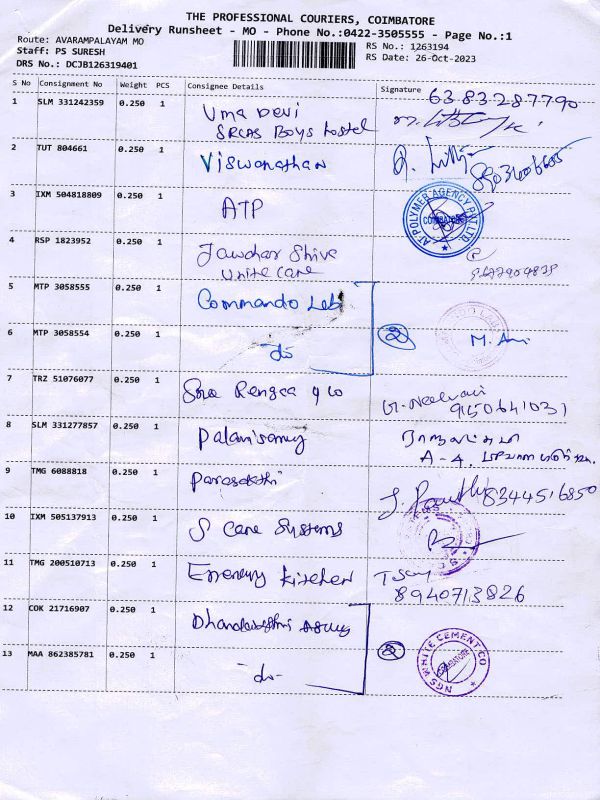 THE PROFESSIONAL COURIERS, COIMBATORE
Delivery Runsheet - MO - Phone No.:0422-3505555 - Page No.:1
Route: AVARAMPALAYAM MO
RS No.: 1263194
Staff: PS SURESH
RS Date: 26-Oct-2023
DRS No.: DCJB126319401
S No Consignment No Weight PCS Consignee Details Signature
6383287790
1 SLM 331242359 0.250 1 Uma Devi
SRCAS Boys hostel
2 TUT 804661 0.250 1 Viswanathan
3 IXM 504818809 0.250 1 ATP
AT POLYMER AGENCY PVT LTD.
COIMBATORE
4 RSP 1823952 0.250 1 Jawahar Shiva
Unite care
5 MTP 3058555 0.250 1 Commando Lab
6 MTP 3058554 0.250 1 do
② M.
7 TRZ 51076077 0.250 1 Sree Rengaa & co
9150641031
8 SLM 331277857 0.250 1 Palanisamy
A-4,
9 TMG 6088818 0.250 1 Parasakthi
8344516850
10 IXM 505137913 0.250 1 S Cane Systems
11 TMG 200510713 0.250 1 kitchen
8940713826
12 COK 21716907 0.250 1
13 MAA 862385781 0.250 1 -do-
②
NGS WHITE CEMENT CO
COIMBATORE